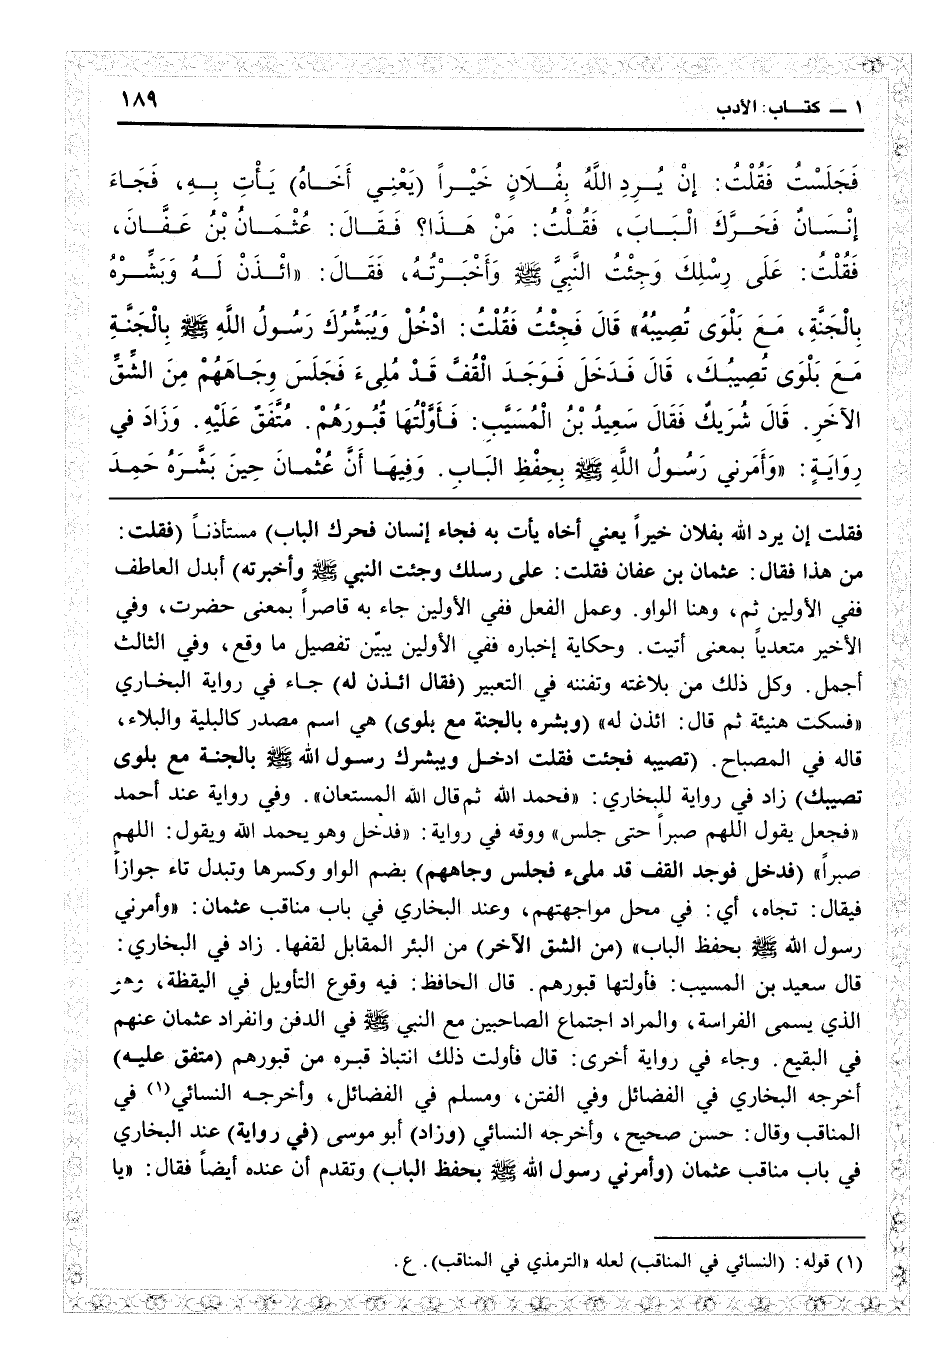 ١ ــ كتــاب: الأدب
١٨٩
فَجَلَسْتُ فَقُلْتُ: إنْ يُـرِدِ اللَّهُ بِفُـلَانٍ خَيْـراً (يَعْنِي أَخَـاهُ) يَـأْتِ بِـهِ، فَجَـاءَ
إنْسَـانٌ فَحَـرَّكَ الْبَـابَ، فَقُلْتُ: مَنْ هَـذَا؟ فَـقَـالَ: عُثْـمَـانُ بْنُ عَـفَّـانَ،
فَقُلْتُ: عَلَى رِسْلِكَ وَجِئْتُ النَّبِيَّ ﷺ وَأَخْبَرْتُـهُ، فَقَالَ: «ائْـذَنْ لَـهُ وَبَشِّـرْهُ
بِالْجَنَّةِ، مَـعَ بَلْوَى تُصِيبُهُ» قَالَ فَجِئْتُ فَقُلْتُ: ادْخُلْ وَيُبَشِّرُكَ رَسُـولُ اللَّهِ ﷺ بِالْجَنَّةِ
مَـعَ بَلْوَى تُصِيبُـكَ، قَالَ فَـدَخَلَ فَـوَجَـدَ الْقُفَّ قَـدْ مُلِىءَ فَجَلَسَ وِجَـاهَهُمْ مِنَ الشِّقِّ
الآخَرِ. قَالَ شُرَيكٌ فَقَالَ سَعِيدُ بْنُ الْمُسَيَّبِ: فَـأَوَّلْتُهَا قُبُـورَهُمْ. مُتَّفَقٌ عَلَيْهِ. وَزَادَ في
رِوَايَـةٍ: «وَأَمَرَني رَسُـولُ اللَّهِ ﷺ بِحِفْظِ البَـابِ. وَفِيهَـا أَنَّ عُثْمَـانَ حِينَ بَشَّـرَهُ حَمِـدَ
فقلت إن يرد الله بفلان خيراً يعني أخاه يأت به فجاء إنسان فحرك الباب) مستأذنـاً (فقلت:
من هذا فقال: عثمان بن عفان فقلت: على رسلك وجئت النبي ﷺ وأخبرته) أبدل العاطف
ففي الأولين ثم، وهنا الواو. وعمل الفعل ففي الأولين جاء به قاصراً بمعنى حضرت، وفي
الأخير متعدياً بمعنى أتيت. وحكاية إخباره ففي الأولين يبيّن تفصيل ما وقع، وفي الثالث
أجمل. وكل ذلك من بلاغته وتفننه في التعبير (فقال ائـذن له) جـاء في رواية البخـاري
«فسكت هنيئة ثم قال: ائذن له» (وبشره بالجنة مع بلوى) هي اسم مصدر كالبلية والبلاء،
قاله في المصباح. (تصيبه فجئت فقلت ادخـل ويبشرك رسـول الله ﷺ بالجنـة مع بلوى
تصيبك) زاد في رواية للبخاري: «فحمد الله ثم قال الله المستعان». وفي رواية عند أحمد
«فجعل يقول اللهم صبراً حتى جلس» ووقه في رواية: «فدخل وهو يحمد الله ويقول: اللهم
صبراً» (فدخل فوجد القف قد ملىء فجلس وجاههم) بضم الواو وكسرها وتبدل تاء جوازاً
فيقال: تجاه، أي: في محل مواجهتهم، وعند البخاري في باب مناقب عثمان: «وأمرني
رسول الله ﷺ بحفظ الباب» (من الشق الآخر) من البئر المقابل لقفها. زاد في البخاري:
قال سعيد بن المسيب: فأولتها قبورهم. قال الحافظ: فيه وقوع التأويل في اليقظة، وهو
الذي يسمى الفراسة، والمراد اجتماع الصاحبين مع النبي ﷺ في الدفن وانفراد عثمان عنهم
في البقيع. وجاء في رواية أخرى: قال فأولت ذلك انتباذ قبـره من قبورهم (متفق عليـه)
أخرجه البخاري في الفضائل وفي الفتن، ومسلم في الفضائل، وأخرجـه النسائي(١) في
المناقب وقال: حسن صحيح، وأخرجه النسائي (وزاد) أبو موسى (في رواية) عند البخاري
في باب مناقب عثمان (وأمرني رسول الله ﷺ بحفظ الباب) وتقدم أن عنده أيضاً فقال: «يا
(١) قوله: (النسائي في المناقب) لعله «الترمذي في المناقب). ع.